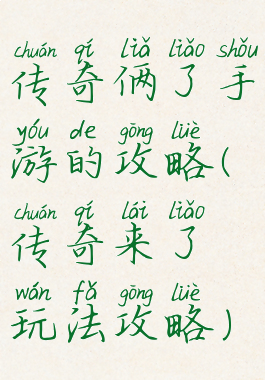 chuán qí liǎ liǎo shǒu
传奇俩了手
yóu de gōng lüè
游的攻略(
chuán qí lái liǎo
传奇来了
wán fǎ gōng lüè
玩法攻略)